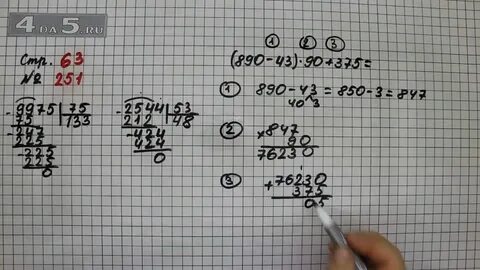 4da5.RU
Стр. 63
№ 251
9975 | 75
75 | 133
- 247
225
- 225
225
0
- 2544 | 53
212 | 48
- 424
424
0
① ② ③
(890-43)·90+375=
① 890-43=850-3=847
40 3
② ×847
90
76230
③ 1
+76230
375
05